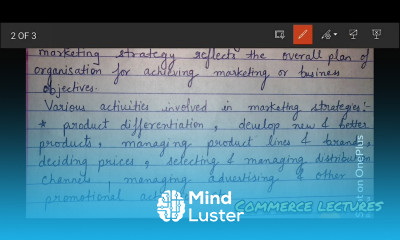 2 OF 3
marketing strategy reflects the overall plan of
organisation for achieving marketing or business
objectives.
Various activities involved in marketing strategies:-
* product differentiation, develop new & better
products, managing product lines & brands,
deciding prices, selecting & managing distribution
channels, managing advertising & other
promotional
Shot on OnePlus
Mind
Luster
COMMERCE LECTURES